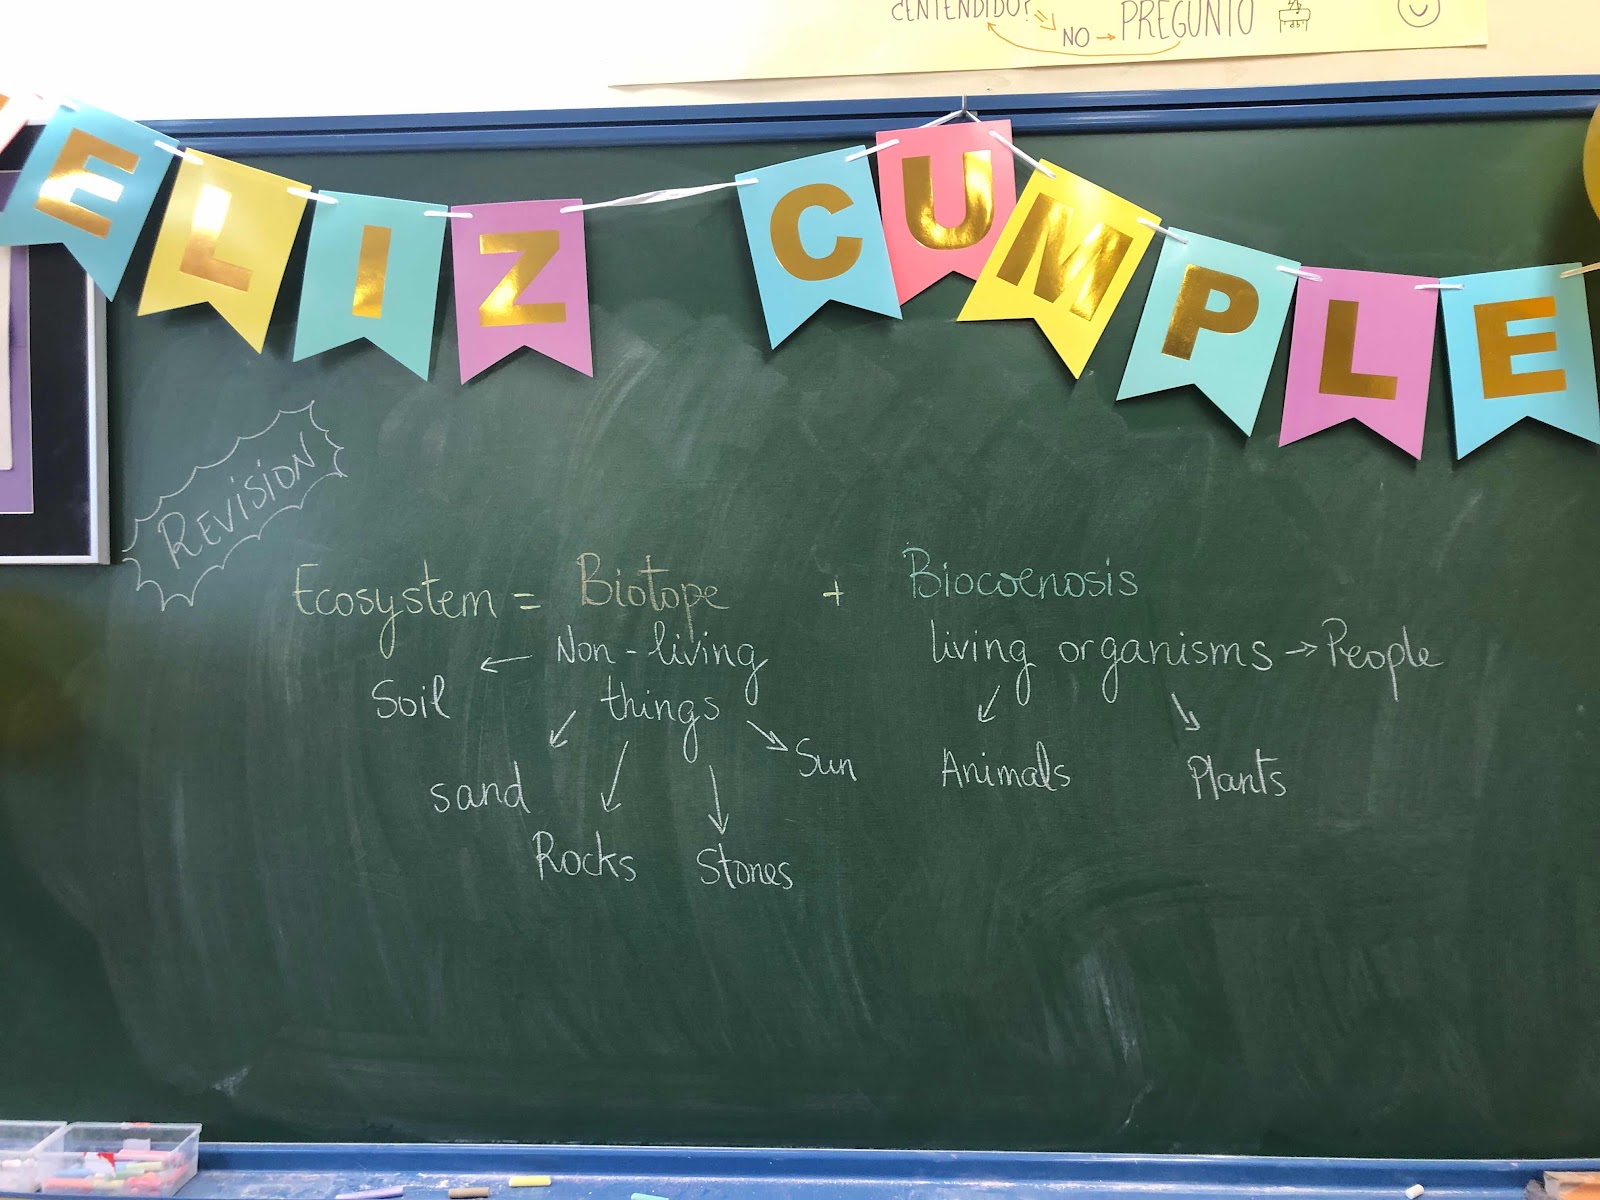 ¿ENTENDIDO?
NO → PREGUNTO
ELIZ CUMPLE
REVISION
Ecosystem = Biotope + Biocoenosis
Non-living things
Soil
sand
Rocks
Stones
Sun
living organisms → People
Animals
Plants